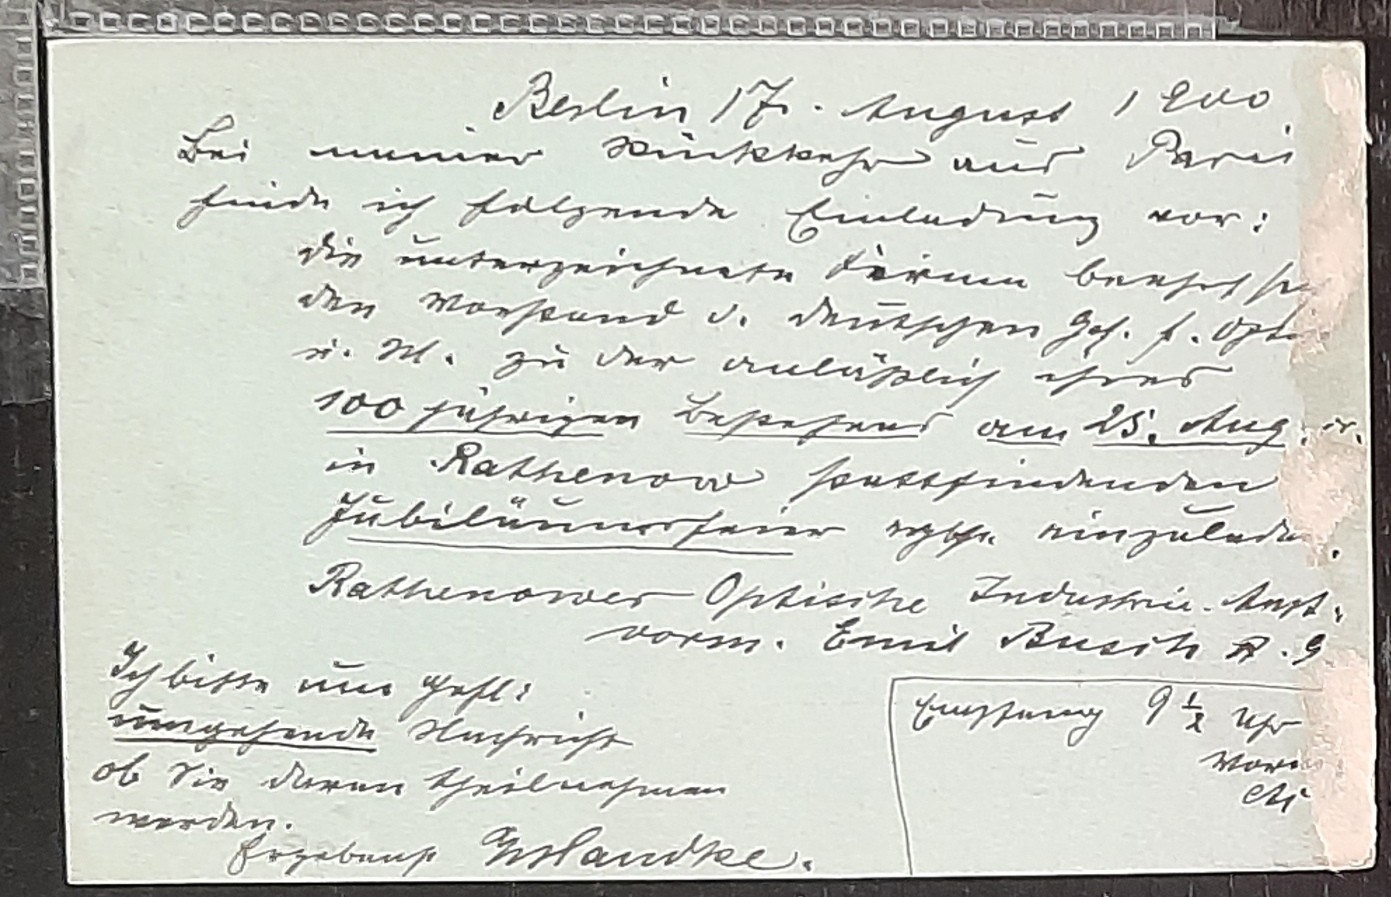 Berlin 17. August 1900
Bei meiner Rückkehr aus Paris
finde ich folgende Einladung vor:
Die unterzeichnete Firma beehrt sich
den Vorstand d. deutschen Ges. f. Opt
u. M. zu der anläßlich ihres
100 jährigen Bestehens am 25. Aug.
in Rathenow stattfindenden
Jubiläumsfeier einzuladen.
Rathenower Optische Industrie-Anst.
vorm. Emil Busch A. G
Ich bitte um gefl:
umgehende Nachricht
ob Sie daran theilnehmen
werden.
Ergebenst Handke.
Empfang 9 1/2 Uhr
Vorm